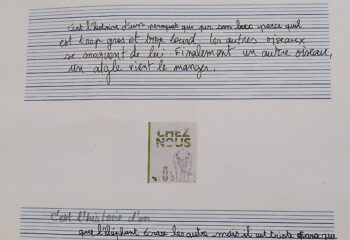 c'est l'histoire d'un perroquet qui per son bec parce qu'il
est trop gros et trop lourd. les autres oiseaux
se moquent de lui. Finalement un autre oiseau,
un aigle vient le manger.
CHEZ
NOUS
C'est l'histoire d'un
que l'éléphant écrase les autre mais il est triste parce que